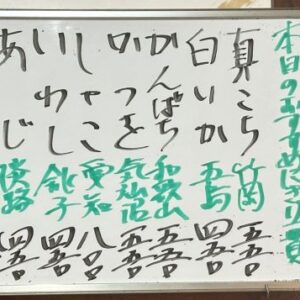 本日のおすすめにぎり一貫
真こち 竹岡 五五〇
白いか 五島 四五〇
かんぱち 和歌山 五五〇
かつを 気仙沼 五五〇
しゃこ 愛知 八〇〇
いわし 銚子 四五〇
あじ 淡路 四五〇